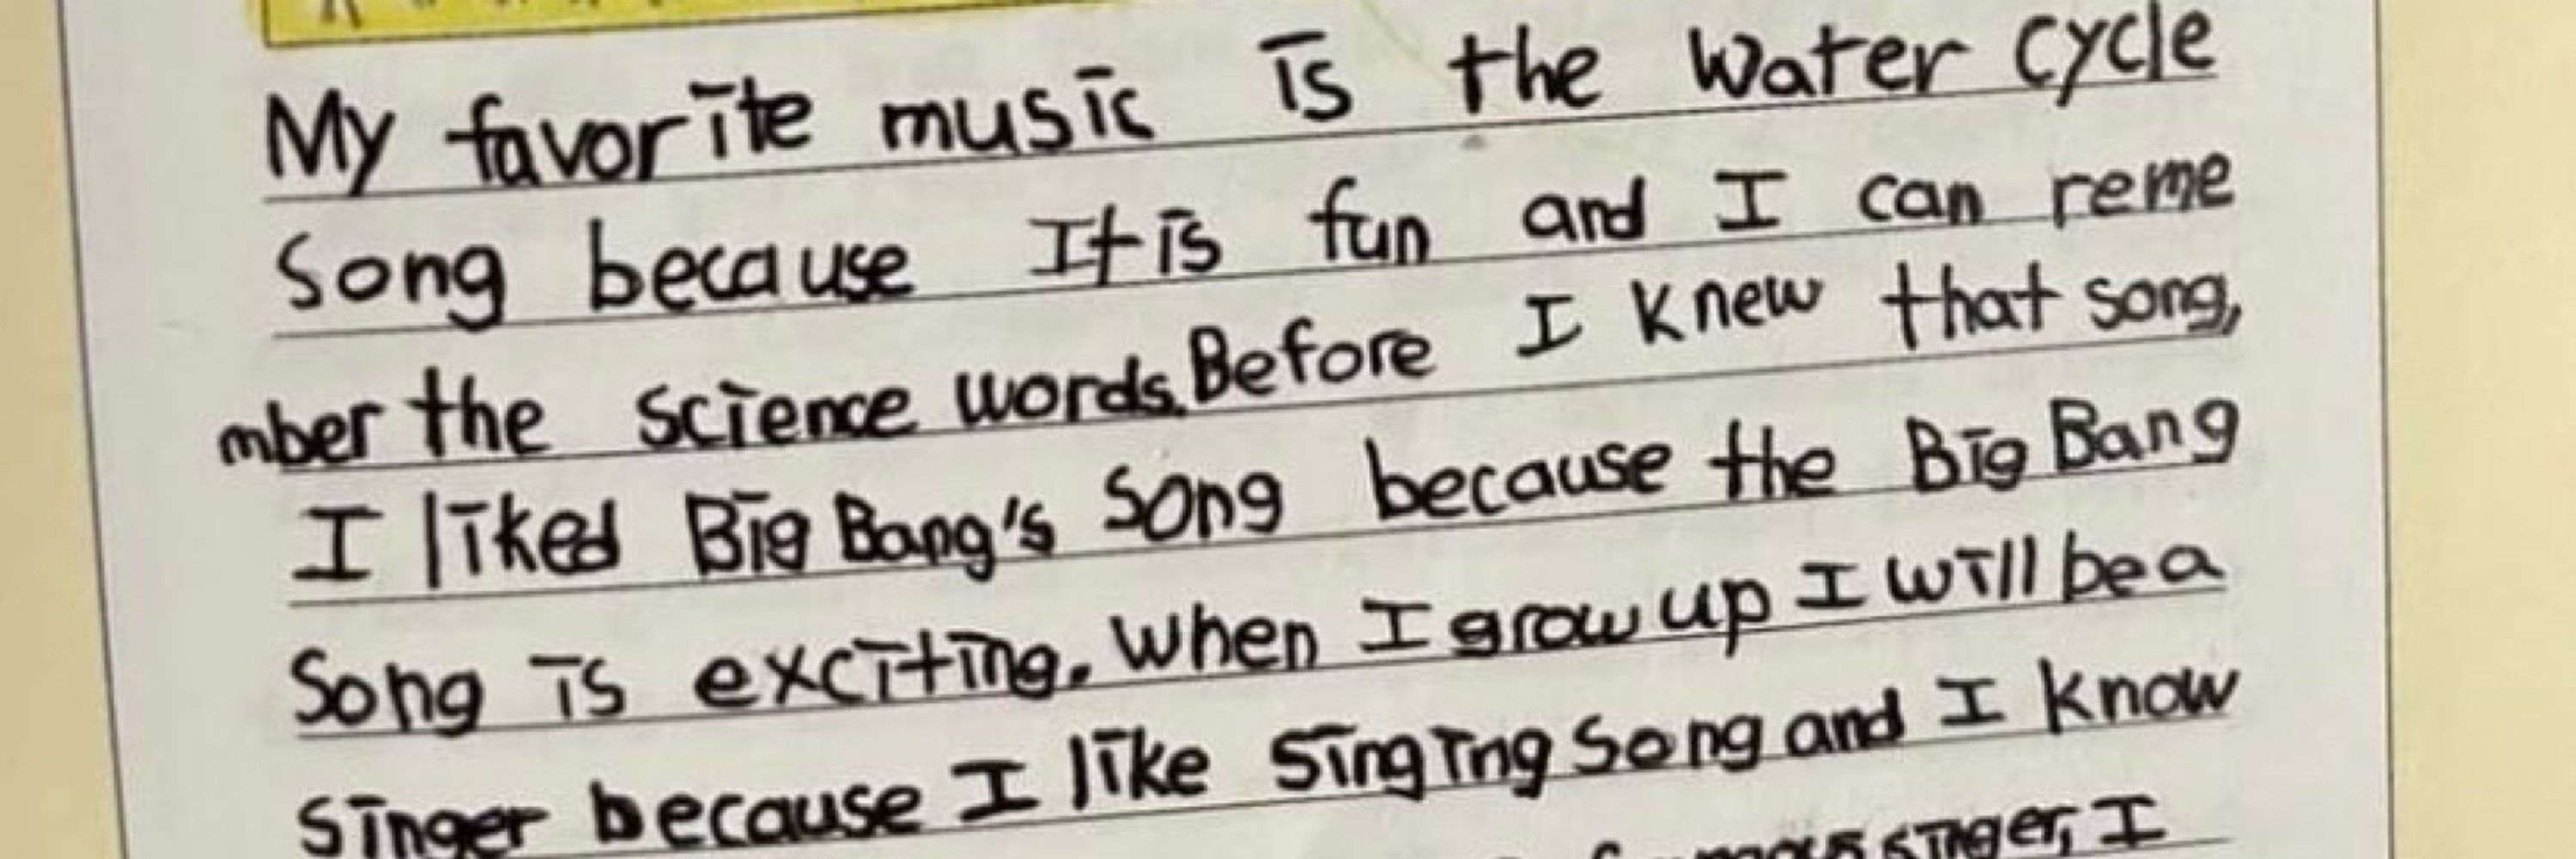 My favorite music is the Water Cycle
Song because It is fun and I can reme
mber the science words. Before I knew that song,
I liked Big Bang's Song because the Big Bang
Song is exciting. When I grow up I will be a
singer because I like singing Song and I know
singer, I